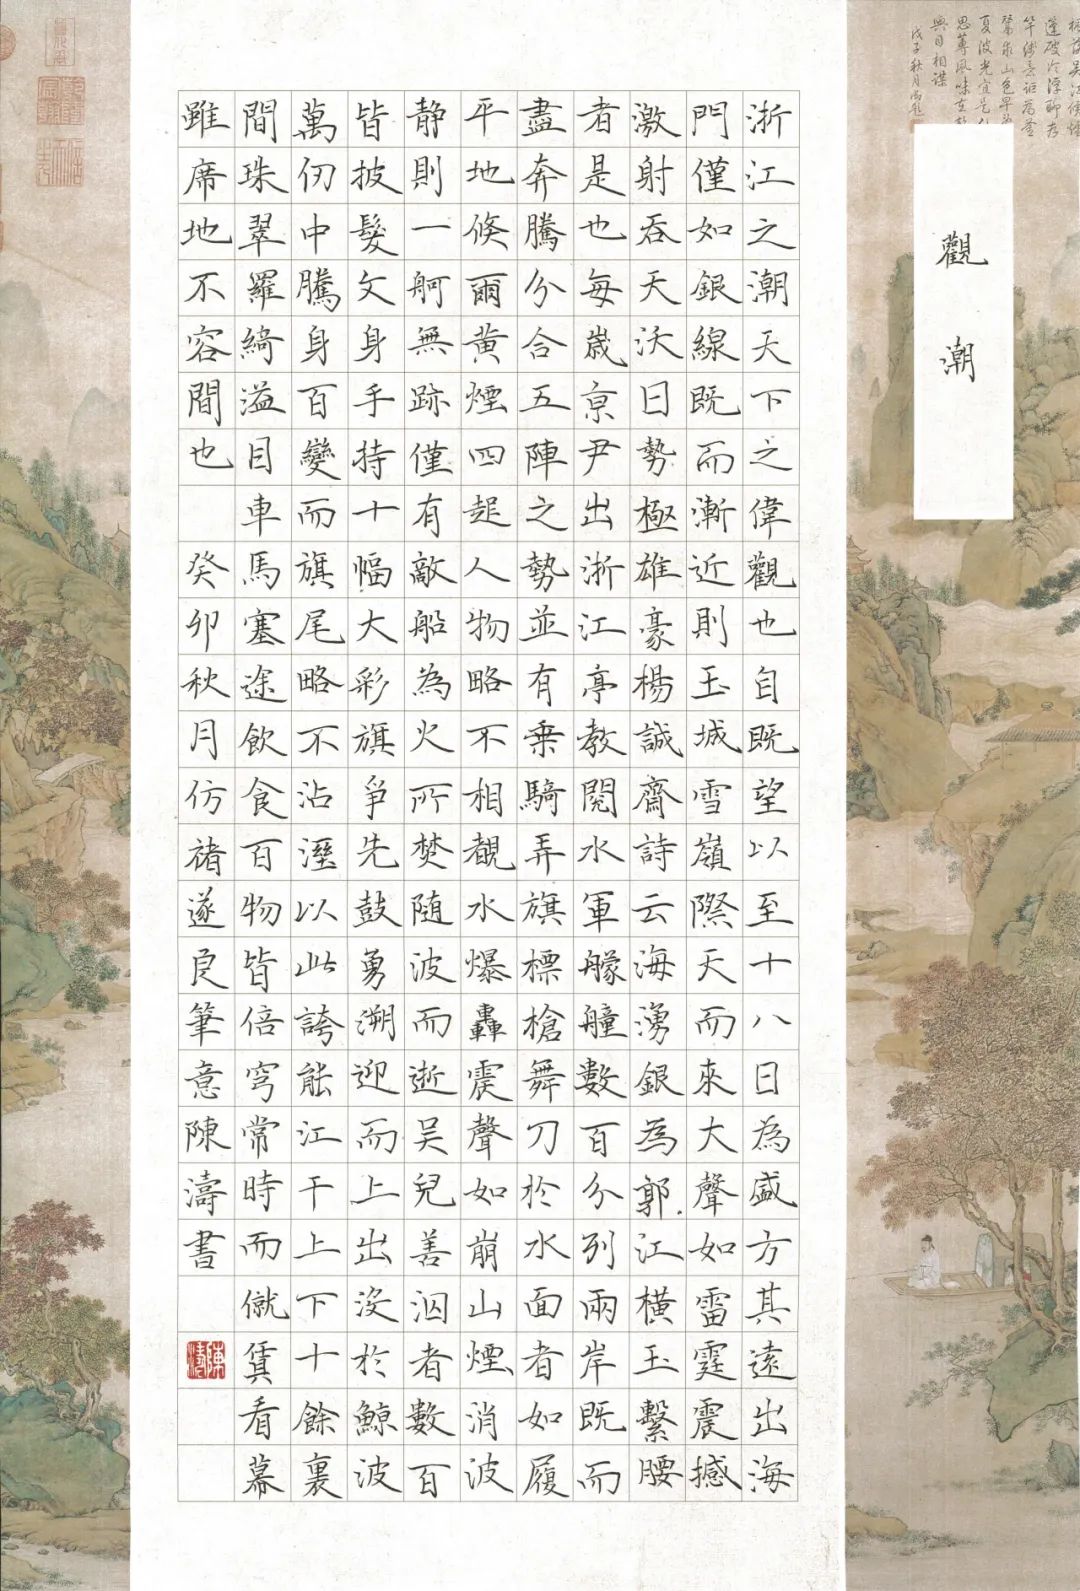 觀潮
浙江之潮天下之偉觀也自既望以至十八日為盛方其遠出海
門僅如銀線既而漸近則玉城雪嶺際天而來大聲如雷霆震撼
激射吞天沃日勢極雄豪楊誠齋詩云海湧銀為郭江橫玉繫腰
者是也每歲京尹出浙江亭教閱水軍艨艟數百分列兩岸既而
盡奔騰分合五陣之勢並有乘騎弄旗標槍舞刀於水面者如履
平地倏爾黃煙四起人物略不相覩水爆轟震聲如崩山煙消波
靜則一舸無跡僅有敵船為火所焚隨波而逝吳兒善泅者數百
皆披髮文身手持十幅大彩旗爭先鼓勇溯迎而上出沒於鯨波
萬仞中騰身百變而旗尾略不沾溼以此誇能江干上下十餘裏
間珠翠羅綺溢目車馬塞途飲食百物皆倍穹常時而僦賃看幕
雖席地不容間也 癸卯秋月仿褚遂良筆意陳濤書
陳濤
與目相謀
戊子秋月御題